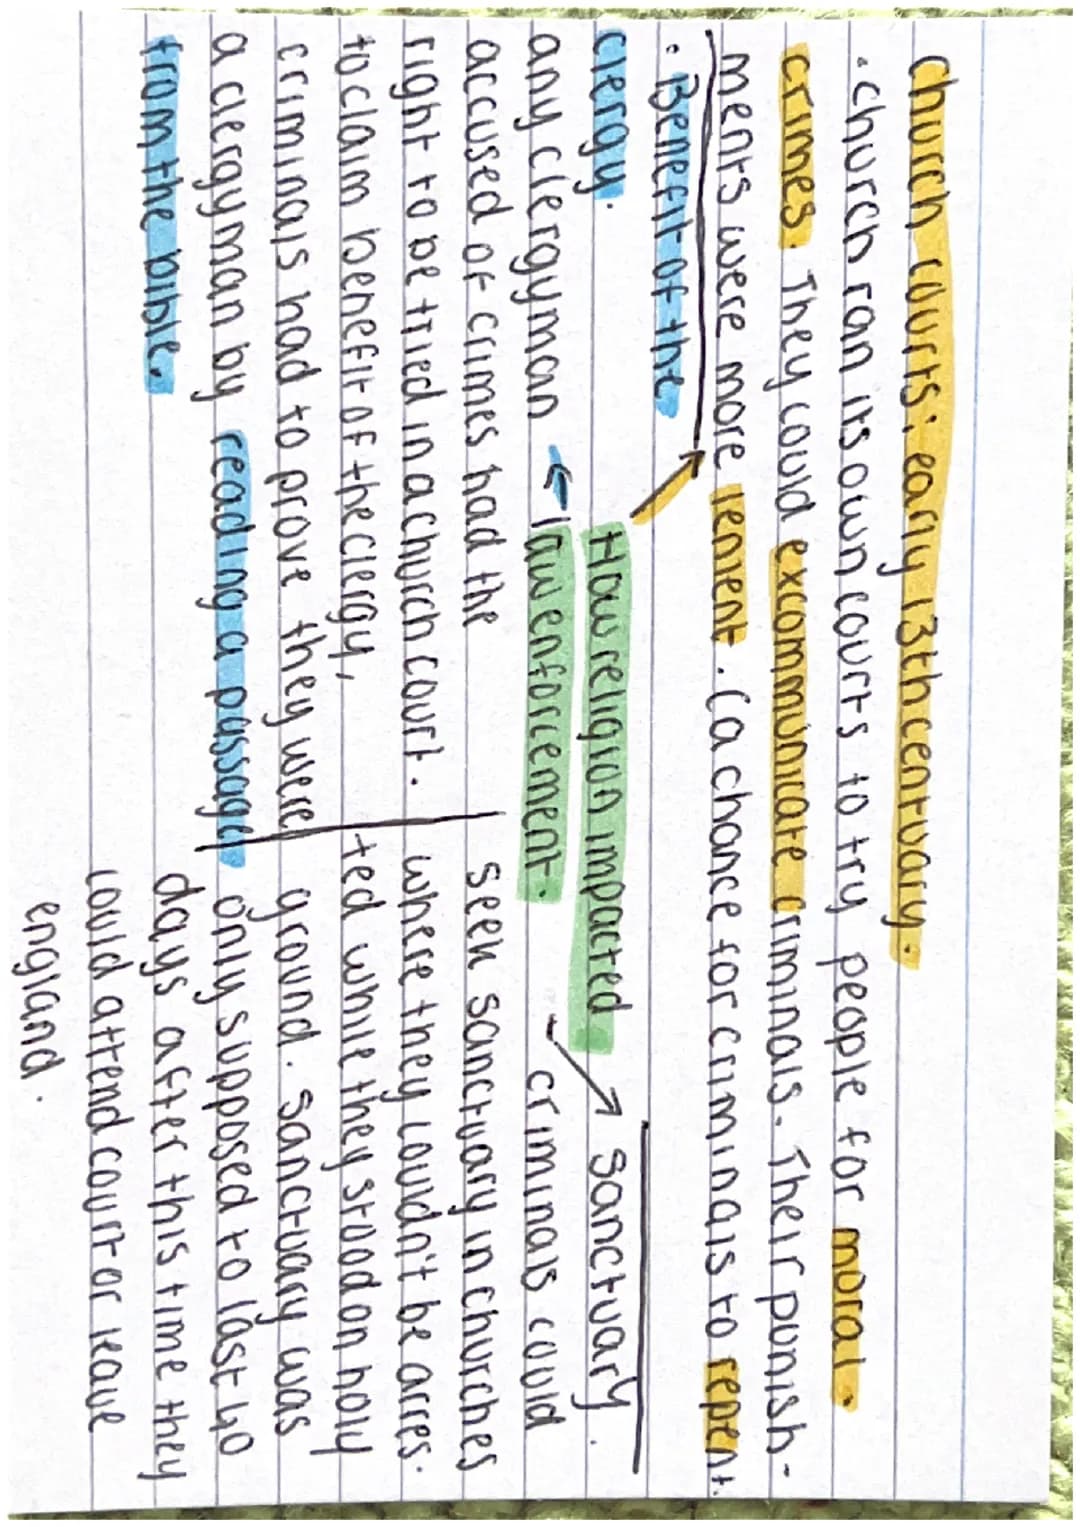 church courts: early 13th centuary.
. church ran its own courts to try people for moral.
crimes. They could excommunicate criminals. Their punish-
ments were more lenient. (a chance for criminals to repent.
. Benefit of the
clergy.
any clergyman
accused of crimes had the
right to be tried in a church court.
to claim benefit of the clergy,
criminals had to prove they were
a clergyman by reading a passage
from the bible.
How religion impacted
law enforcement.
Sanctuary.
criminals could
seek sanctuary in churches
where they couldn't be arres.
ted while they stood on holy
ground. Sanctuary was
only supposed to last 40
days after this time they
could attend court or leave
england.